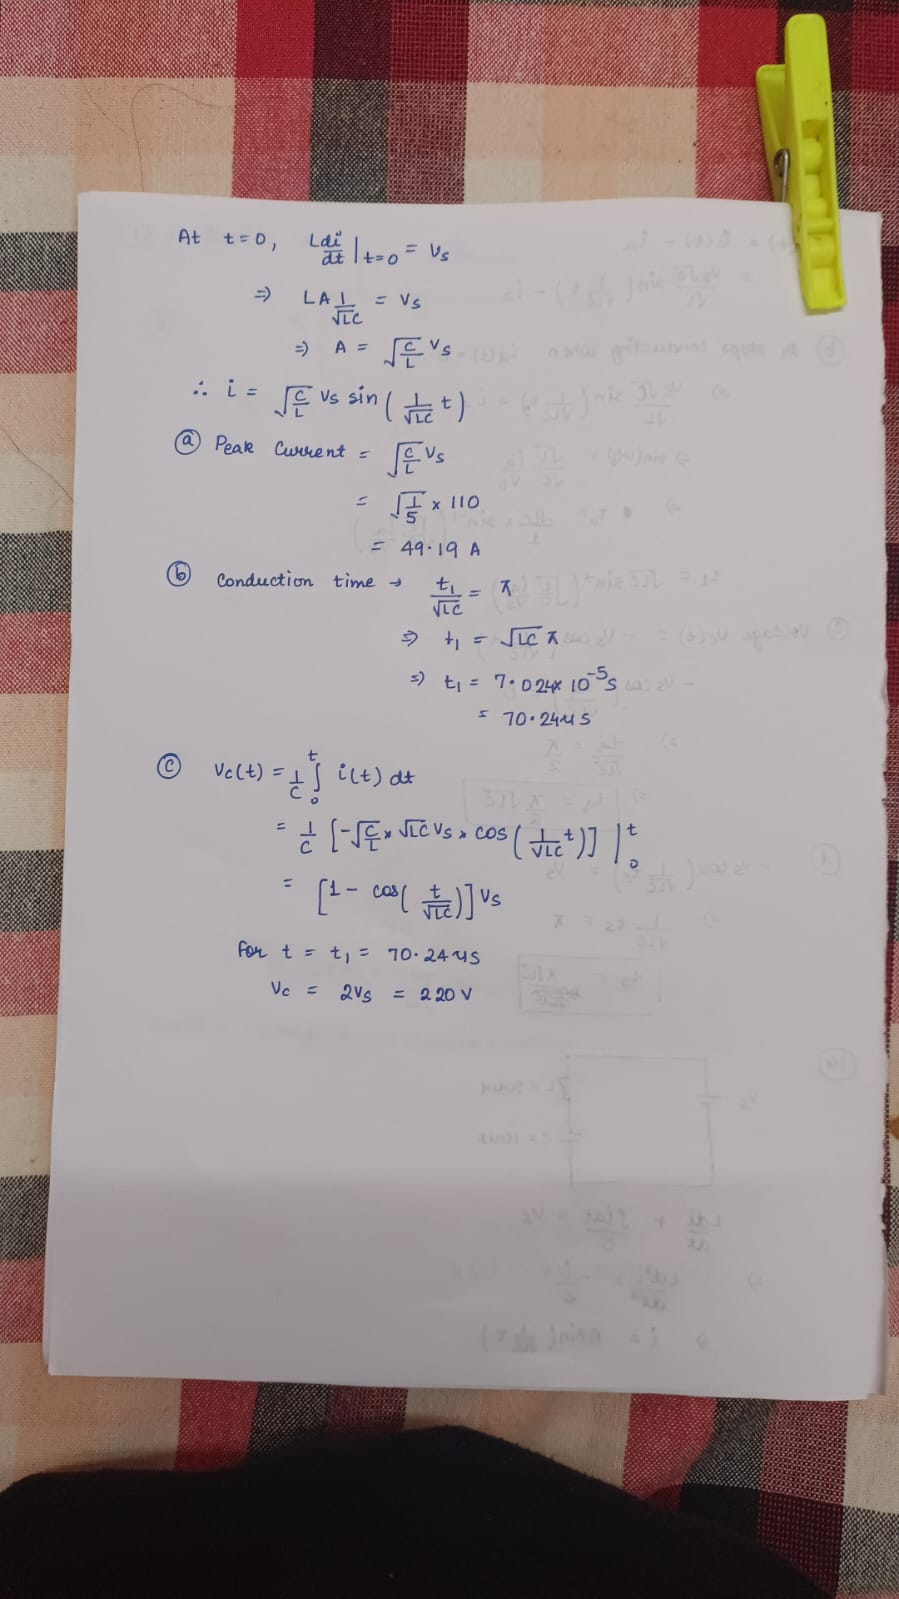 At t=0, L di/dt |t=0 = Vs
⇒ LA 1/√LC = Vs
⇒ A = √C/L Vs
∴ i = √C/L Vs sin(1/√LC t)
ⓐ Peak Current = √C/L Vs
= √1/5 x 110
= 49.19 A
ⓑ Conduction time → t₁/√LC = π
⇒ t₁ = √LC π
⇒ t₁ = 7.024x 10⁻⁵s
= 70.24μs
ⓒ Vc(t) = 1/C ∫₀ᵗ i(t) dt
= 1/C [-√C/L x √LC Vs x cos(1/√LC t)] |₀ᵗ
= [1 - cos(t/√LC)] Vs
For t = t₁ = 70.24μs
Vc = 2Vs = 220 V